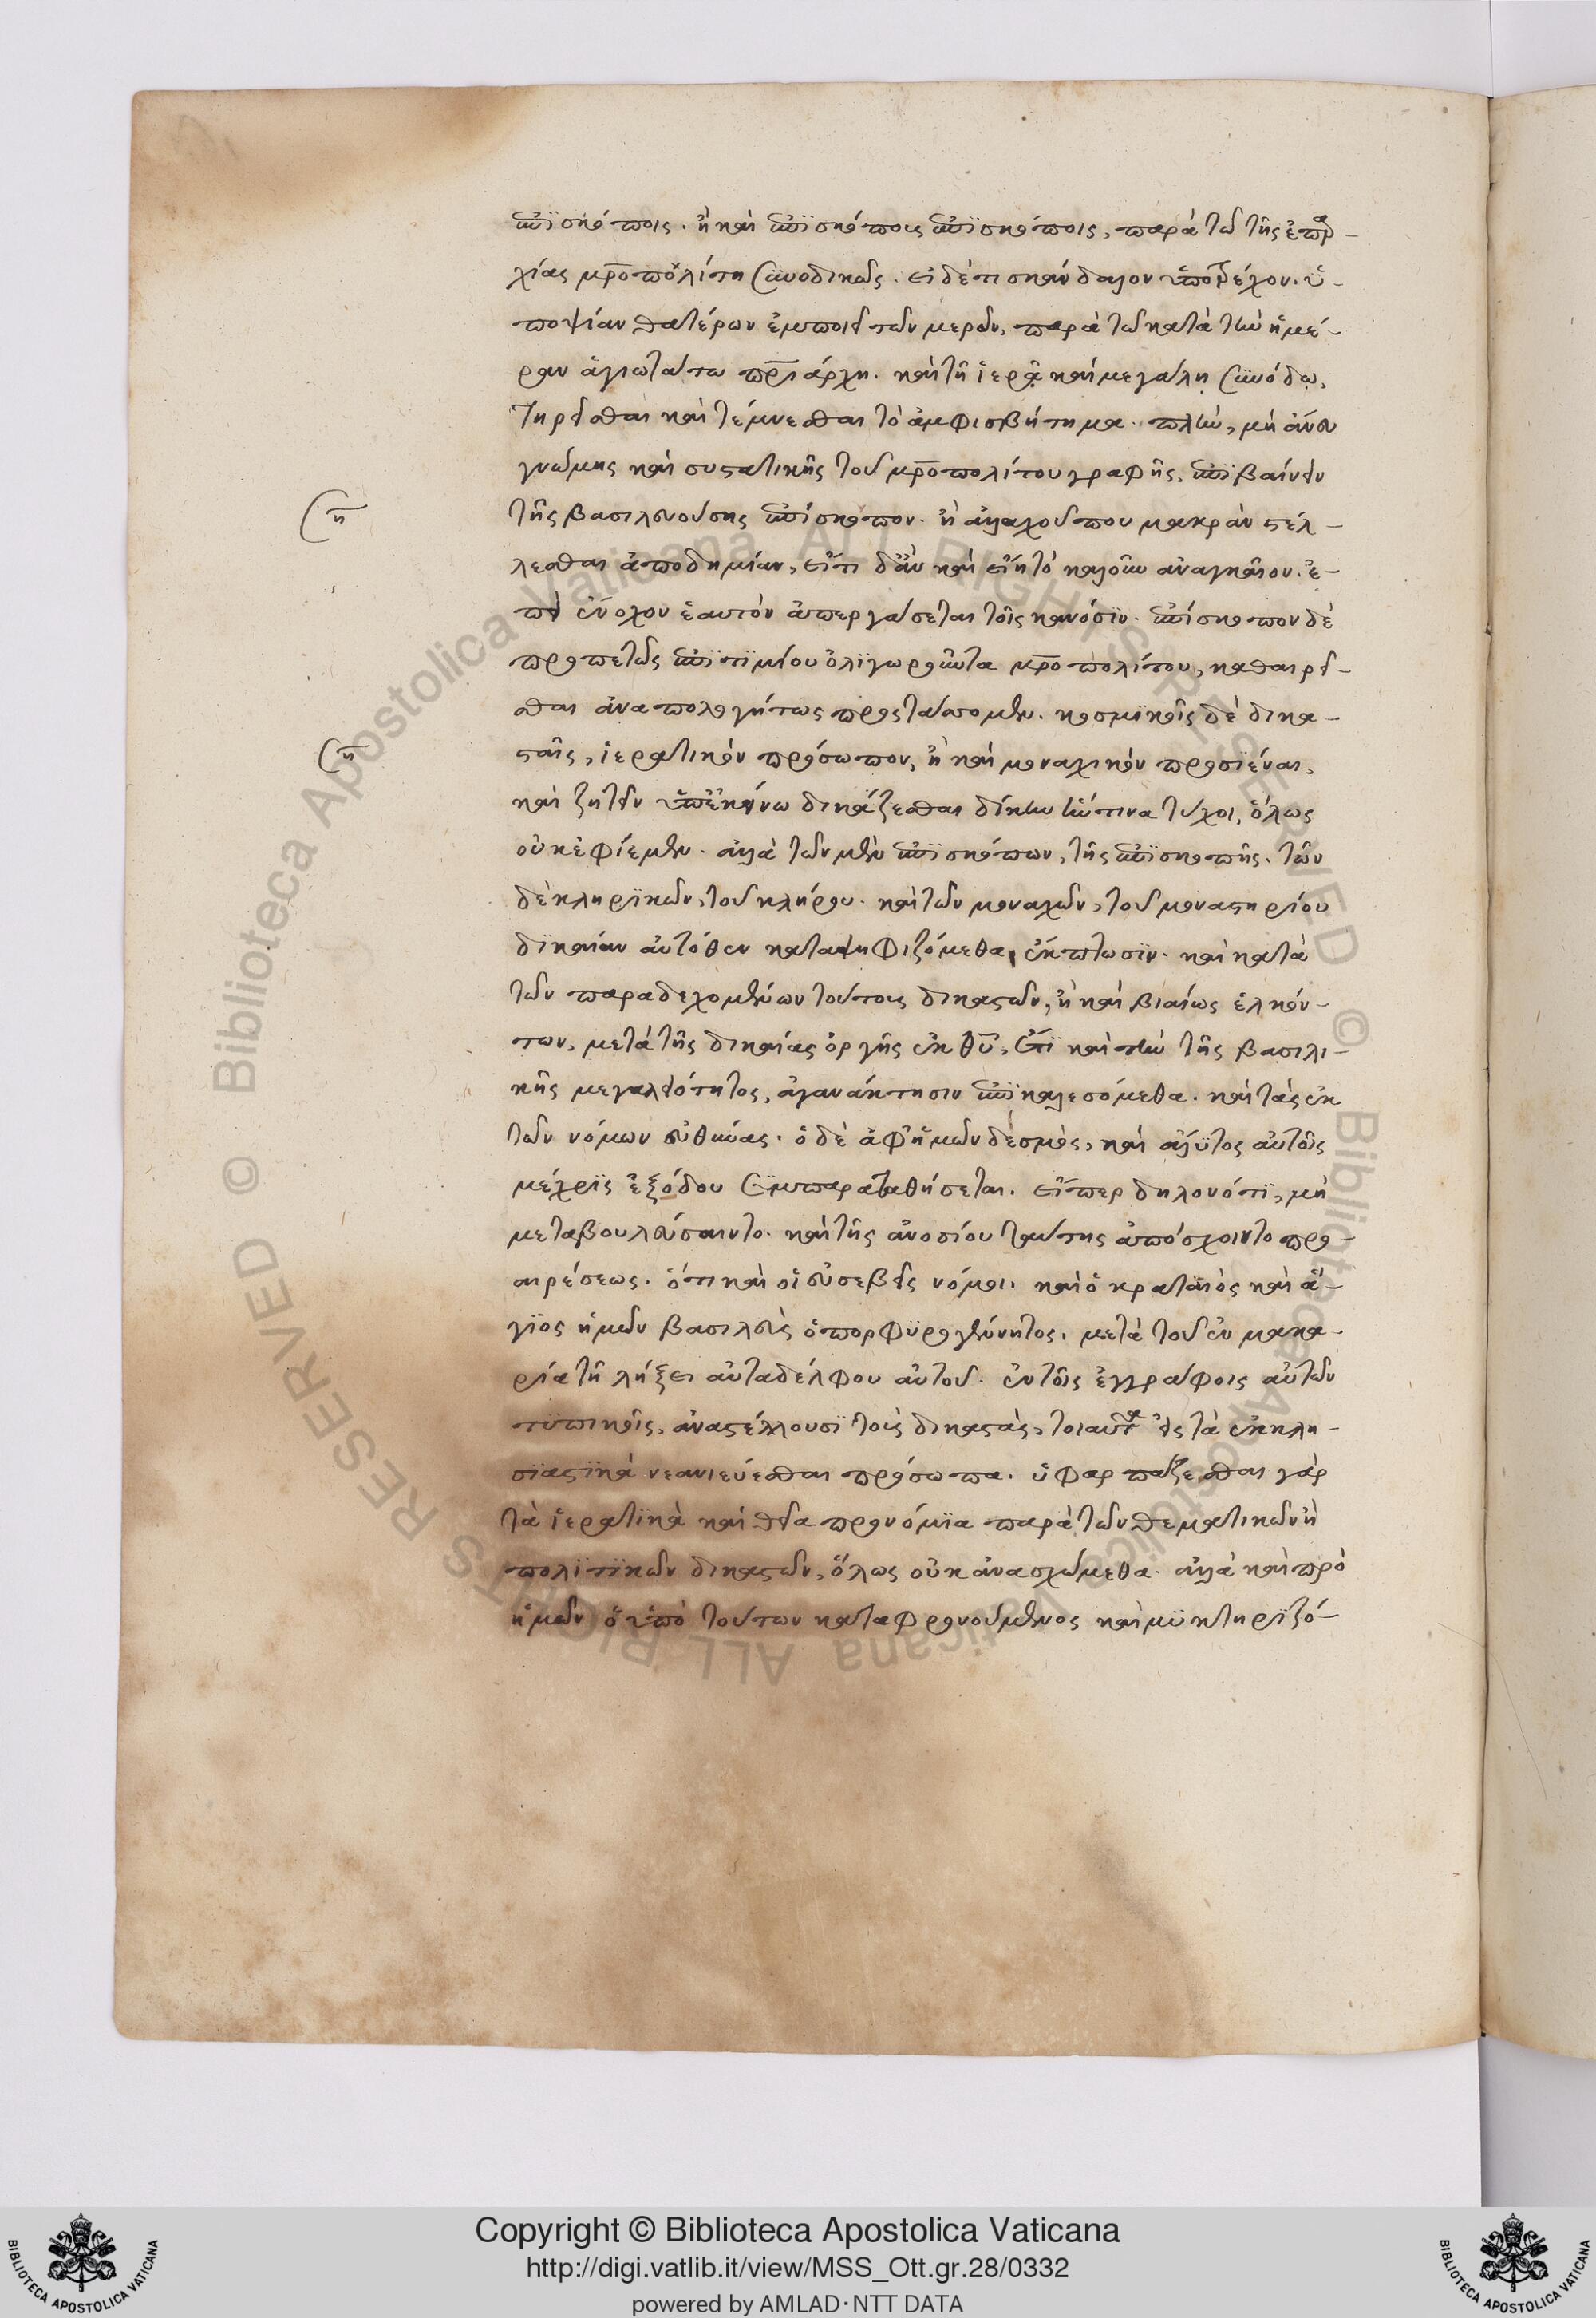 ἐπϊσκόποις. ἢ καὶ ἐπϊσκόπους ἐπϊσκόποις, παρὰ τῶ τῆς ἐπαρ-
χίας μροπολίτη συνοδικῶς. εἰ δέ τι σκάνδαλον ὑποτρέχον. ὑ-
ποψίαν θατέρων ἐμποιεῖ τῶν μερῶν, παρὰ τῶ κατὰ τὴν ἡμέ-
ραν ἁγιωτάτω πριάρχη. καὶ τῆ ἱερᾷ καὶ μεγάλη συνόδω,
τηρεῖσθαι καὶ τέμνεσθαι τὸ ἀμφισβήτημα. πλὴν, μὴ ἄνευ
γνώμης καὶ συστατικῆς τοῦ μροπολίτου γραφῆς, ἐπϊβαίνειν
τῆς βασιλευούσης ἐπίσκοπον. ἢ ἀλλαχοῦ που μακρὰν στέλ-
λεσθαι ἀποδημίαν, εἴτι δἂν καὶ εἴη τὸ καλοῦν ἀναγκαῖον. ἐ-
πεὶ ἔνοχον ἑαυτὸν ἀπεργάσεται τοῖς κανόσϊν. ἐπίσκοπον δὲ
προπετῶς ἐπϊτϊμίου ὀλϊγωροῦντα μροπολίτου, καθαιρεῖ-
σθαι ἀναπολογήτως προστάττομεν. κοσμϊκοῖς δὲ δικα-
σταῖς, ἱερατικὸν πρόσωπον, ἢ καὶ μοναχικὸν προσϊέναι,
καὶ ζητεῖν ὑπ' ἐκείνω δικάζεσθαι δίκην ἥντινα τύχοι, ὅλως
οὐκ ἐφίεμεν. ἀλλὰ τῶν μὲν ἐπϊσκόπων, τῆς ἐπϊσκοπῆς. τῶν
δὲ κληρϊκῶν, τοῦ κλήρου. καὶ τῶν μοναχῶν, τοῦ μοναστηρίου
δϊκαίαν αὐτόθεν καταψηφιζόμεθα ἔκπτωσϊν. καὶ κατὰ
τῶν παραδεχομένων τούτους δικαστῶν, ἢ καὶ βιαίως ἑλκόν-
των, μετὰ τῆς δικαίας ὀργῆς ἐκ θυ, ἔτϊ καὶ τὴν τῆς βασιλι-
κῆς μεγαλειότητος, ἀγανάκτησιν ἐπϊκαλεσόμεθα. καὶ τὰς ἐκ
τῶν νόμων εὐθύνας. ὁ δὲ ἀφ' ἡμῶν δεσμὸς, καὶ ἄλϋτος αὐτοῖς
μέχρϊς ἐξόδου συμπαραταθήσεται. εἴπερ δηλονότϊ, μὴ
μεταβουλεύσαιντο. καὶ τῆς ἀνοσίου ταύτης ἀπόσχοιντο προ-
αιρέσεως. ὅτι καὶ οἱ εὐσεβεῖς νόμοι. καὶ ὁ κραταιὸς καὶ ἅ-
γϊος ἡμῶν βασιλεὺς ὁ πορφϋρογέννητος, μετὰ τοῦ ἐν μακα-
ρία τῆ λήξει αὐταδέλφου αὐτοῦ. ἐν τοῖς ἐγγράφοις αὐτῶν
τϋπικοῖς, ἀναστέλλουσϊ τοὺς δικαστὰς, τοιαῦτα εἰς τὰ ἐκκλη-
σϊαστϊκὰ νεανιεύεσθαι πρόσωπα. ὑφαρπάζεσθαι γὰρ
τὰ ἱερατϊκὰ καὶ θεῖα προνόμϊα παρὰ τῶν θεματικῶν ἢ
πολϊτϊκῶν δικαστῶν, ὅλως οὐκ ἀνασχώμεθα. ἀλλὰ καὶ πρὸ
ἡμῶν ὁ ὑπὸ τούτων καταφρονούμενος καὶ μϋκτηρϊζό-